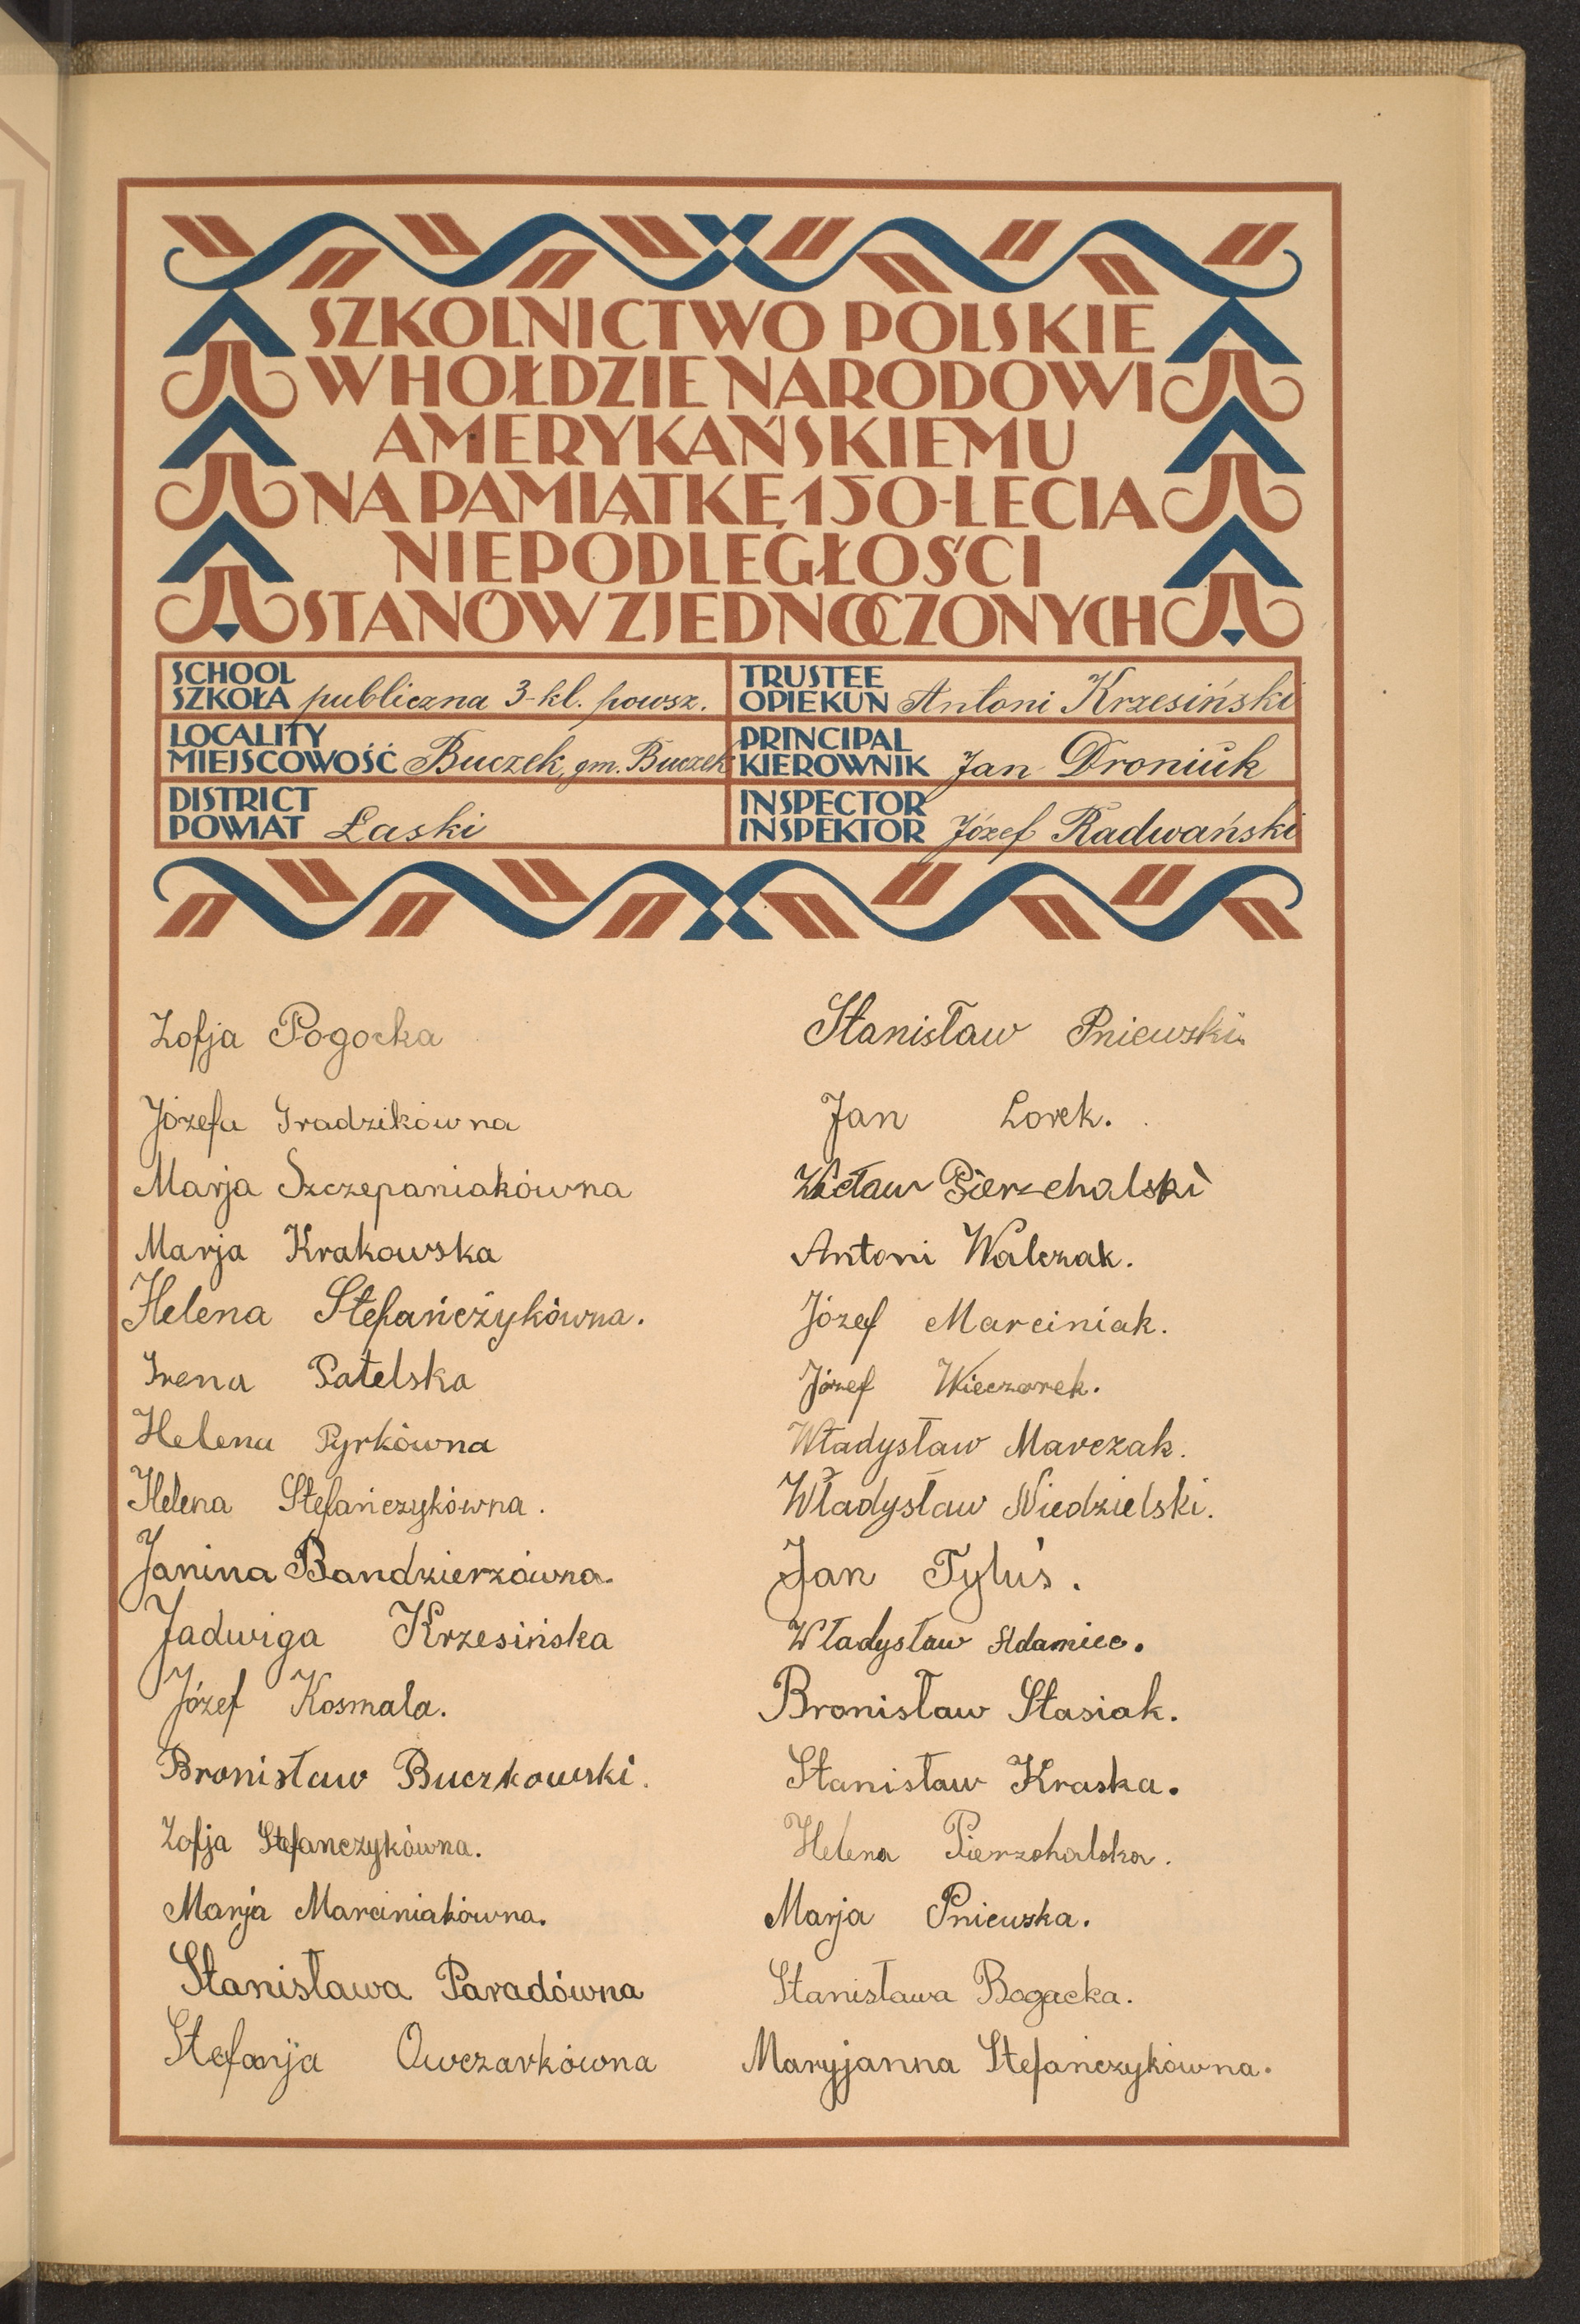 SZKOLNICTWO POLSKIE
W HOŁDZIE NARODOWI
AMERYKAŃSKIEMU
NA PAMIĄTKĘ 150-LECIA
NIEPODLEGŁOŚCI
STANÓW ZJEDNOCZONYCH
SCHOOL
SZKOŁA publiczna 3-kl. powsz.
TRUSTEE
OPIEKUN Antoni Krzesiński
LOCALITY
MIEJSCOWOŚĆ Buczek, gm. Buczek
PRINCIPAL
KIEROWNIK Jan Droniuk
DISTRICT
POWIAT Łaski
INSPECTOR
INSPEKTOR Józef Radwański
Zofja Pogocka
Józefa Gradzikówna
Marja Szczepaniakówna
Marja Krakowska
Helena Stefańczykówna.
Irena Patelska
Helena Pyrkówna
Helena Stefańczykówna.
Janina Bandzierzówna.
Jadwiga Krzesińska
Józef Kosmala.
Bronisław Buczkowski.
Zofja Stefanczykówna.
Marja Marciniakówna.
Stanisława Paradówna
Stefanja Owczarkówna
Stanisław Pniewski.
Jan Lorek.
Wacław Pierzchalski
Antoni Walczak.
Józef Marciniak.
Józef Wieczorek.
Władysław Marczak.
Władysław Niedzielski.
Jan Tyluś.
Władysław Adamiec.
Bronisław Stasiak.
Stanisław Kraska.
Helena Pierzchalska.
Marja Pniewska.
Stanisława Bogacka.
Maryjanna Stefańczykówna.